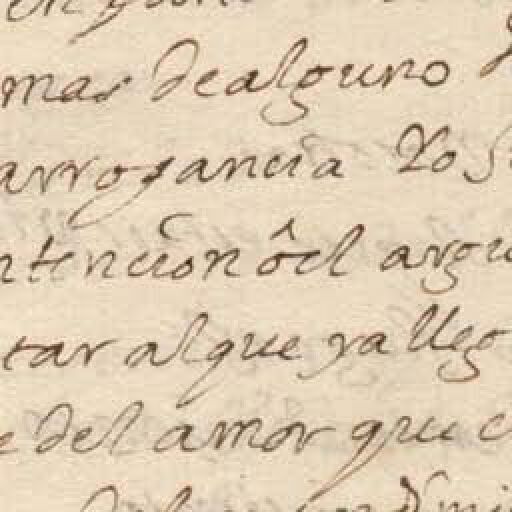 mas de alguno
arrogancia Yo
ntencion ôel argu
tar alque ya lleg
e del amor que